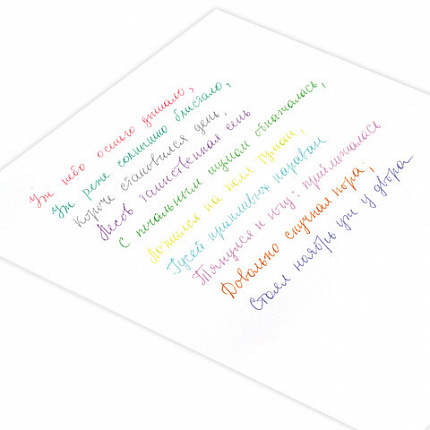 Уж небо осенью дышало,
Уж реже солнышко блистало,
Короче становился день,
Лесов таинственная сень
С печальным шумом обнажалась,
Ложился на поля туман,
Гусей крикливых караван
Тянулся к югу: приближалась
Довольно скучная пора;
Стоял ноябрь уж у двора